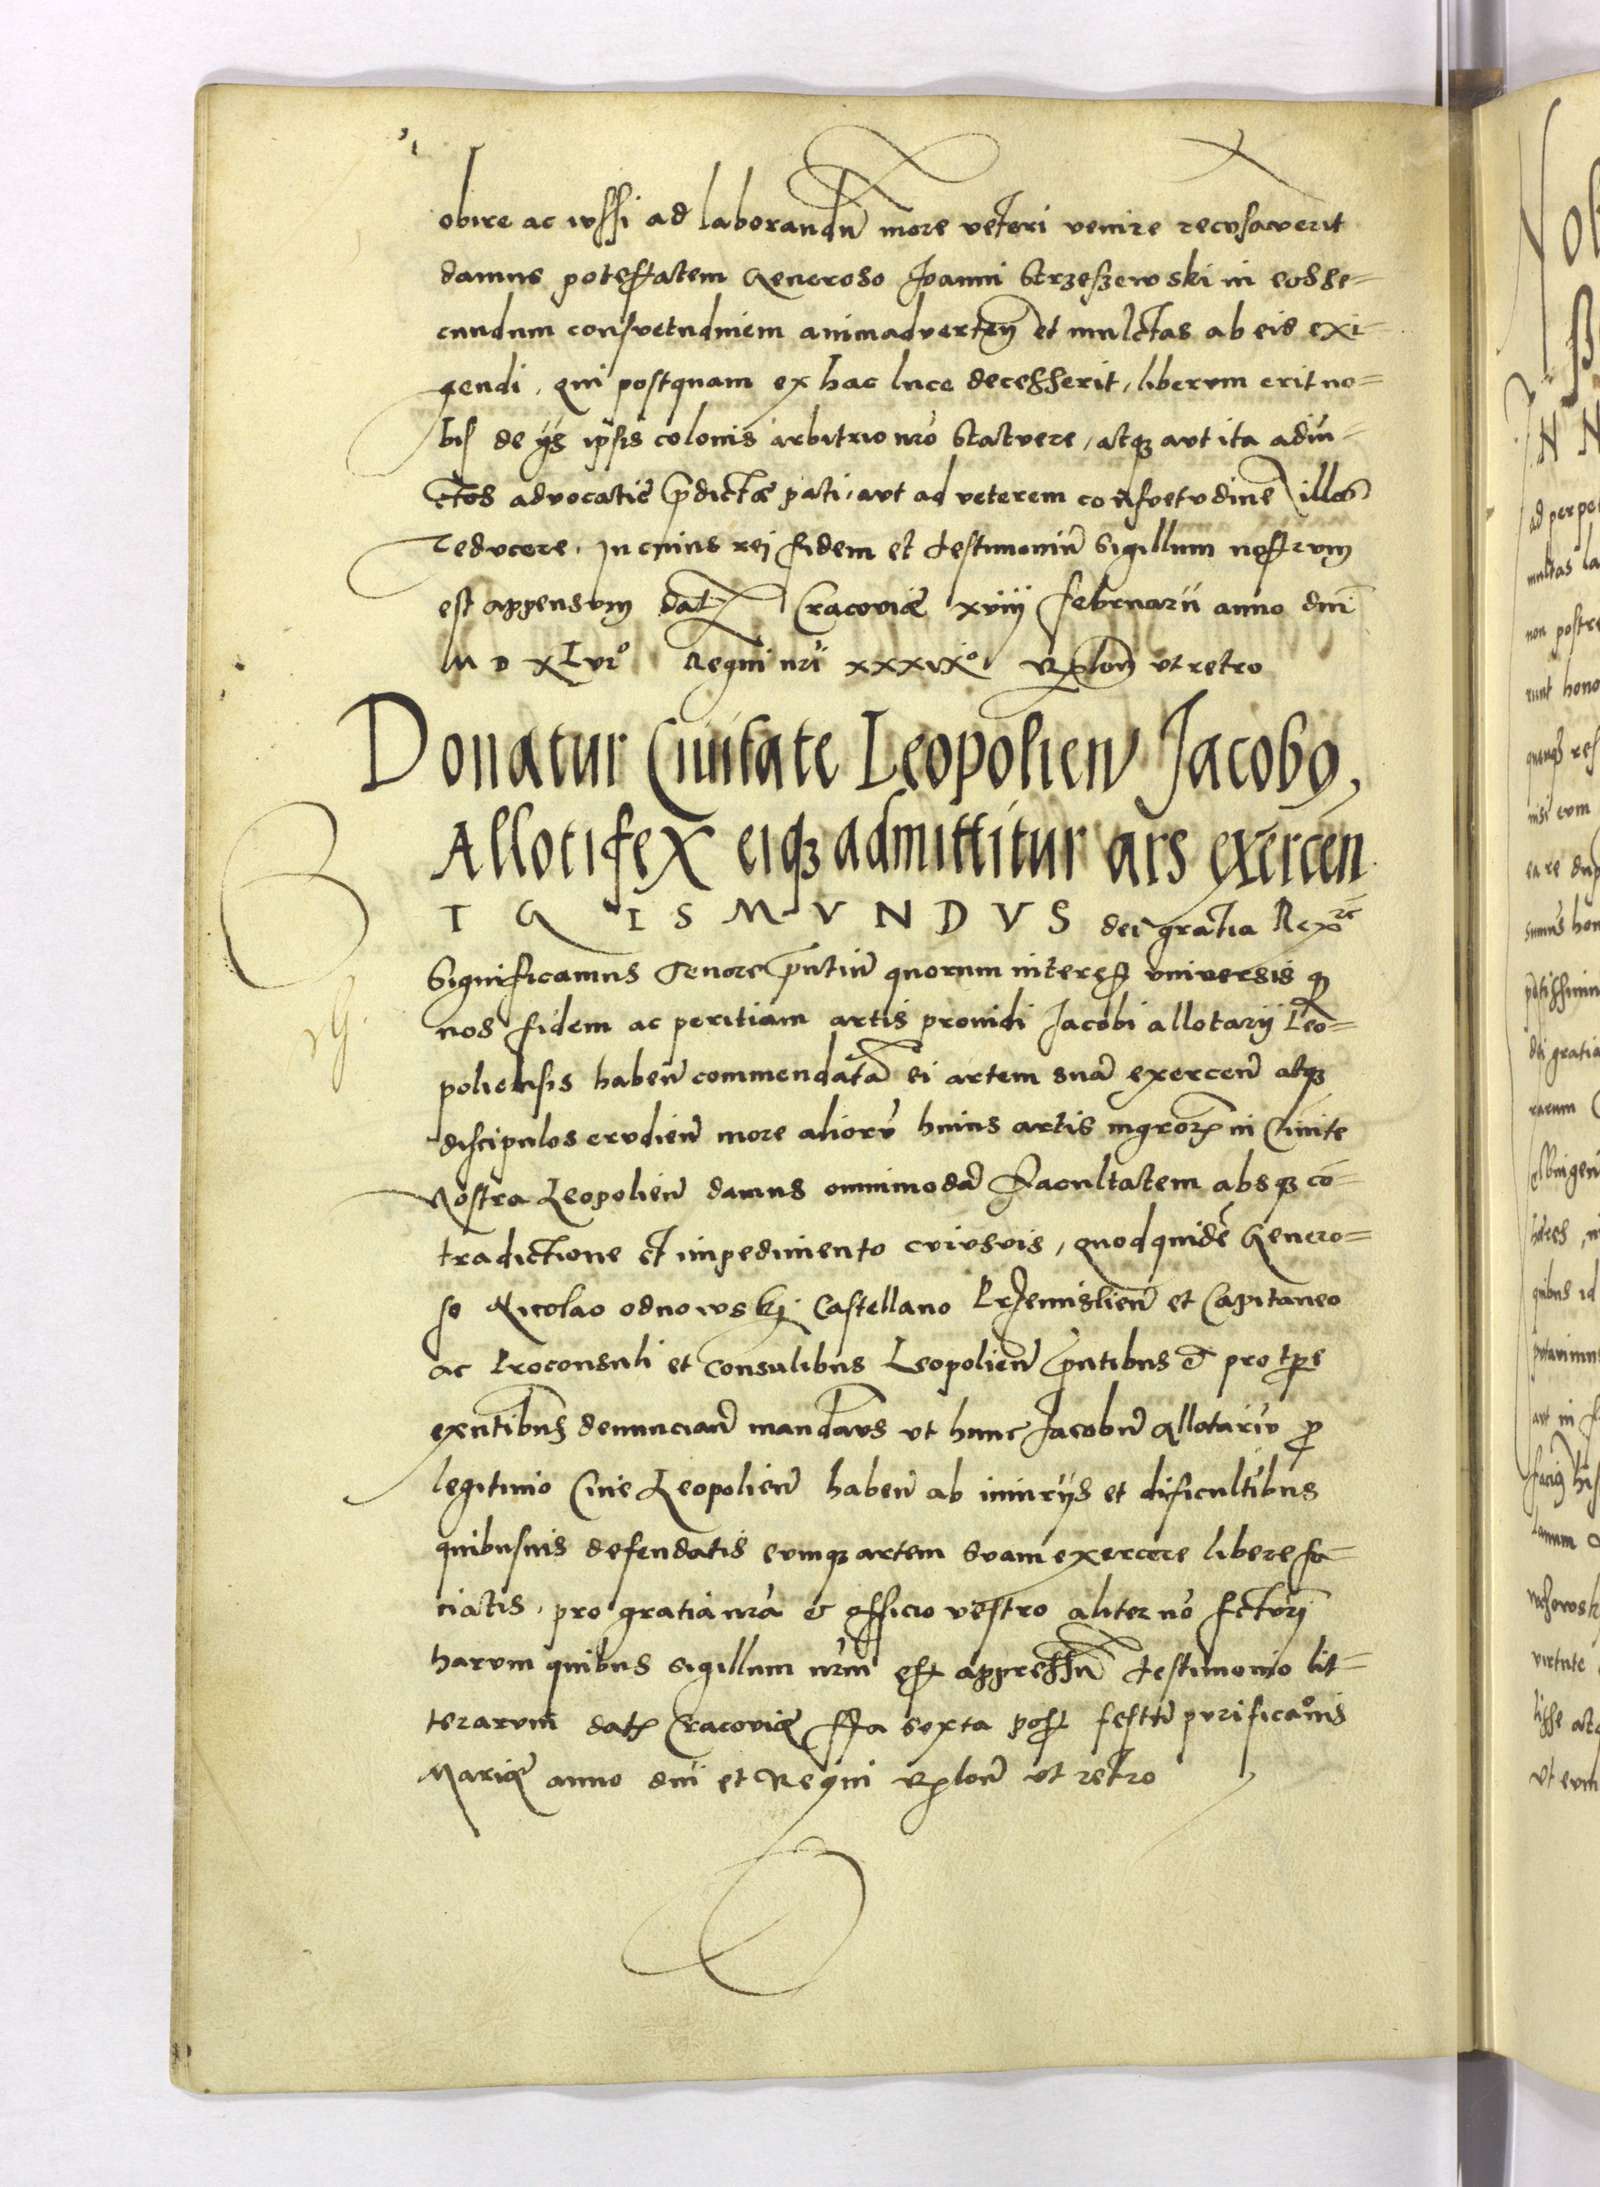 obire ac iussi ad laborandū more veteri venire recusaverit
damus potestatem Generoso Joanni Strzeszewski in eos se=
cundum consvetudinem animadverten̄ et mulctas ab eis exi=
gendi, qui postquam ex hac luce decesserit, liberum erit no=
bis de ijs ipsis colonis arbitrio nr̄o statvere, atq₃ avt ita adiu=
ctos advocatiē p̄dictæ pati, avt ad veterem consvetvdinē illos
redvcere. In cuius rei fidem et testimoniū Sigillum nostrvm
est appensvm dat Cracoviæ xviij februarii anno dn̄i
M D XLVIº Regni nr̄i xxxixº Rr̄lon̄ vt retro
Donatur Civitate Leopolien̄ Jacobꝰ,
Allotifex eiq₃ admittitur ars exercēn
I G I S M V N D V S dei gratia Rex ꝛc
Significamus Tenore p̄ntiū quorum interest vniversis q̄
nos fidem ac peritiam artis providi Jacobi allotarij Leo=
poliensis haben̄ commendatā ei artem suā exercen̄ atq₃
discipulos ervdien̄ more aliorū huius artis mgror̄ in Ciuite
Nostra Leopolien̄ damus omnimodā facultatem absq₃ cō=
tradictione et impedimento cvivsvis, quod quidē Genero=
so Nicolao odnowskj Castellano Przemislien̄ et Capitaneo
ac Proconsuli et Consulibus Leopolien̄ p̄ntibus & pro tp̄re
exn̄tibus denuncian̄ mandavs vt hunc Jacobū Allotariū p̄
legitimo Ciue Leopolien̄ haben̄ ab iniurijs et dificultībus
quibusuis defendatis evmq₃ artem svam exercere libere fa=
ciatis, pro gratia nr̄a & officio vestro aliter nō fctvri
harvm quibus sigillum nr̄m est appressū testimonio lit=
terarvm dat Cracoviæ ffa sexta post festū pvrificaōnis
Mariæ anno dn̄i et Regni Rr̄lon̄ vt retro